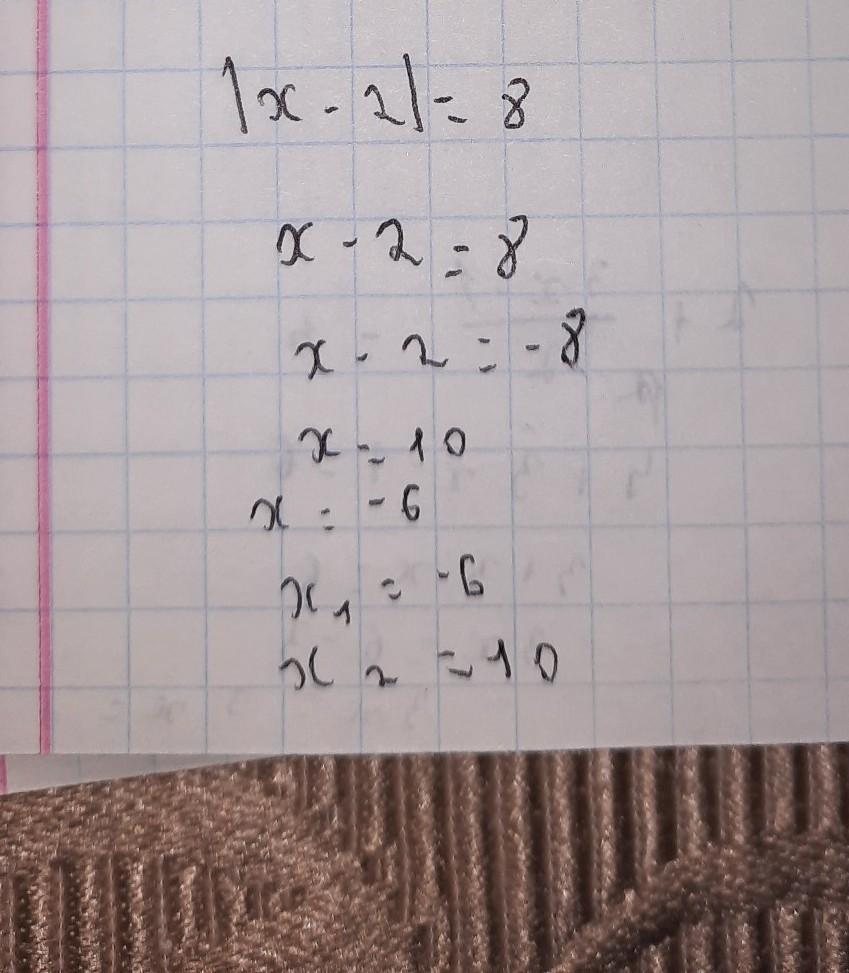 |x - 2| = 8
x - 2 = 8
x - 2 = -8
x = 10
x = -6
x₁ = -6
x₂ = 10